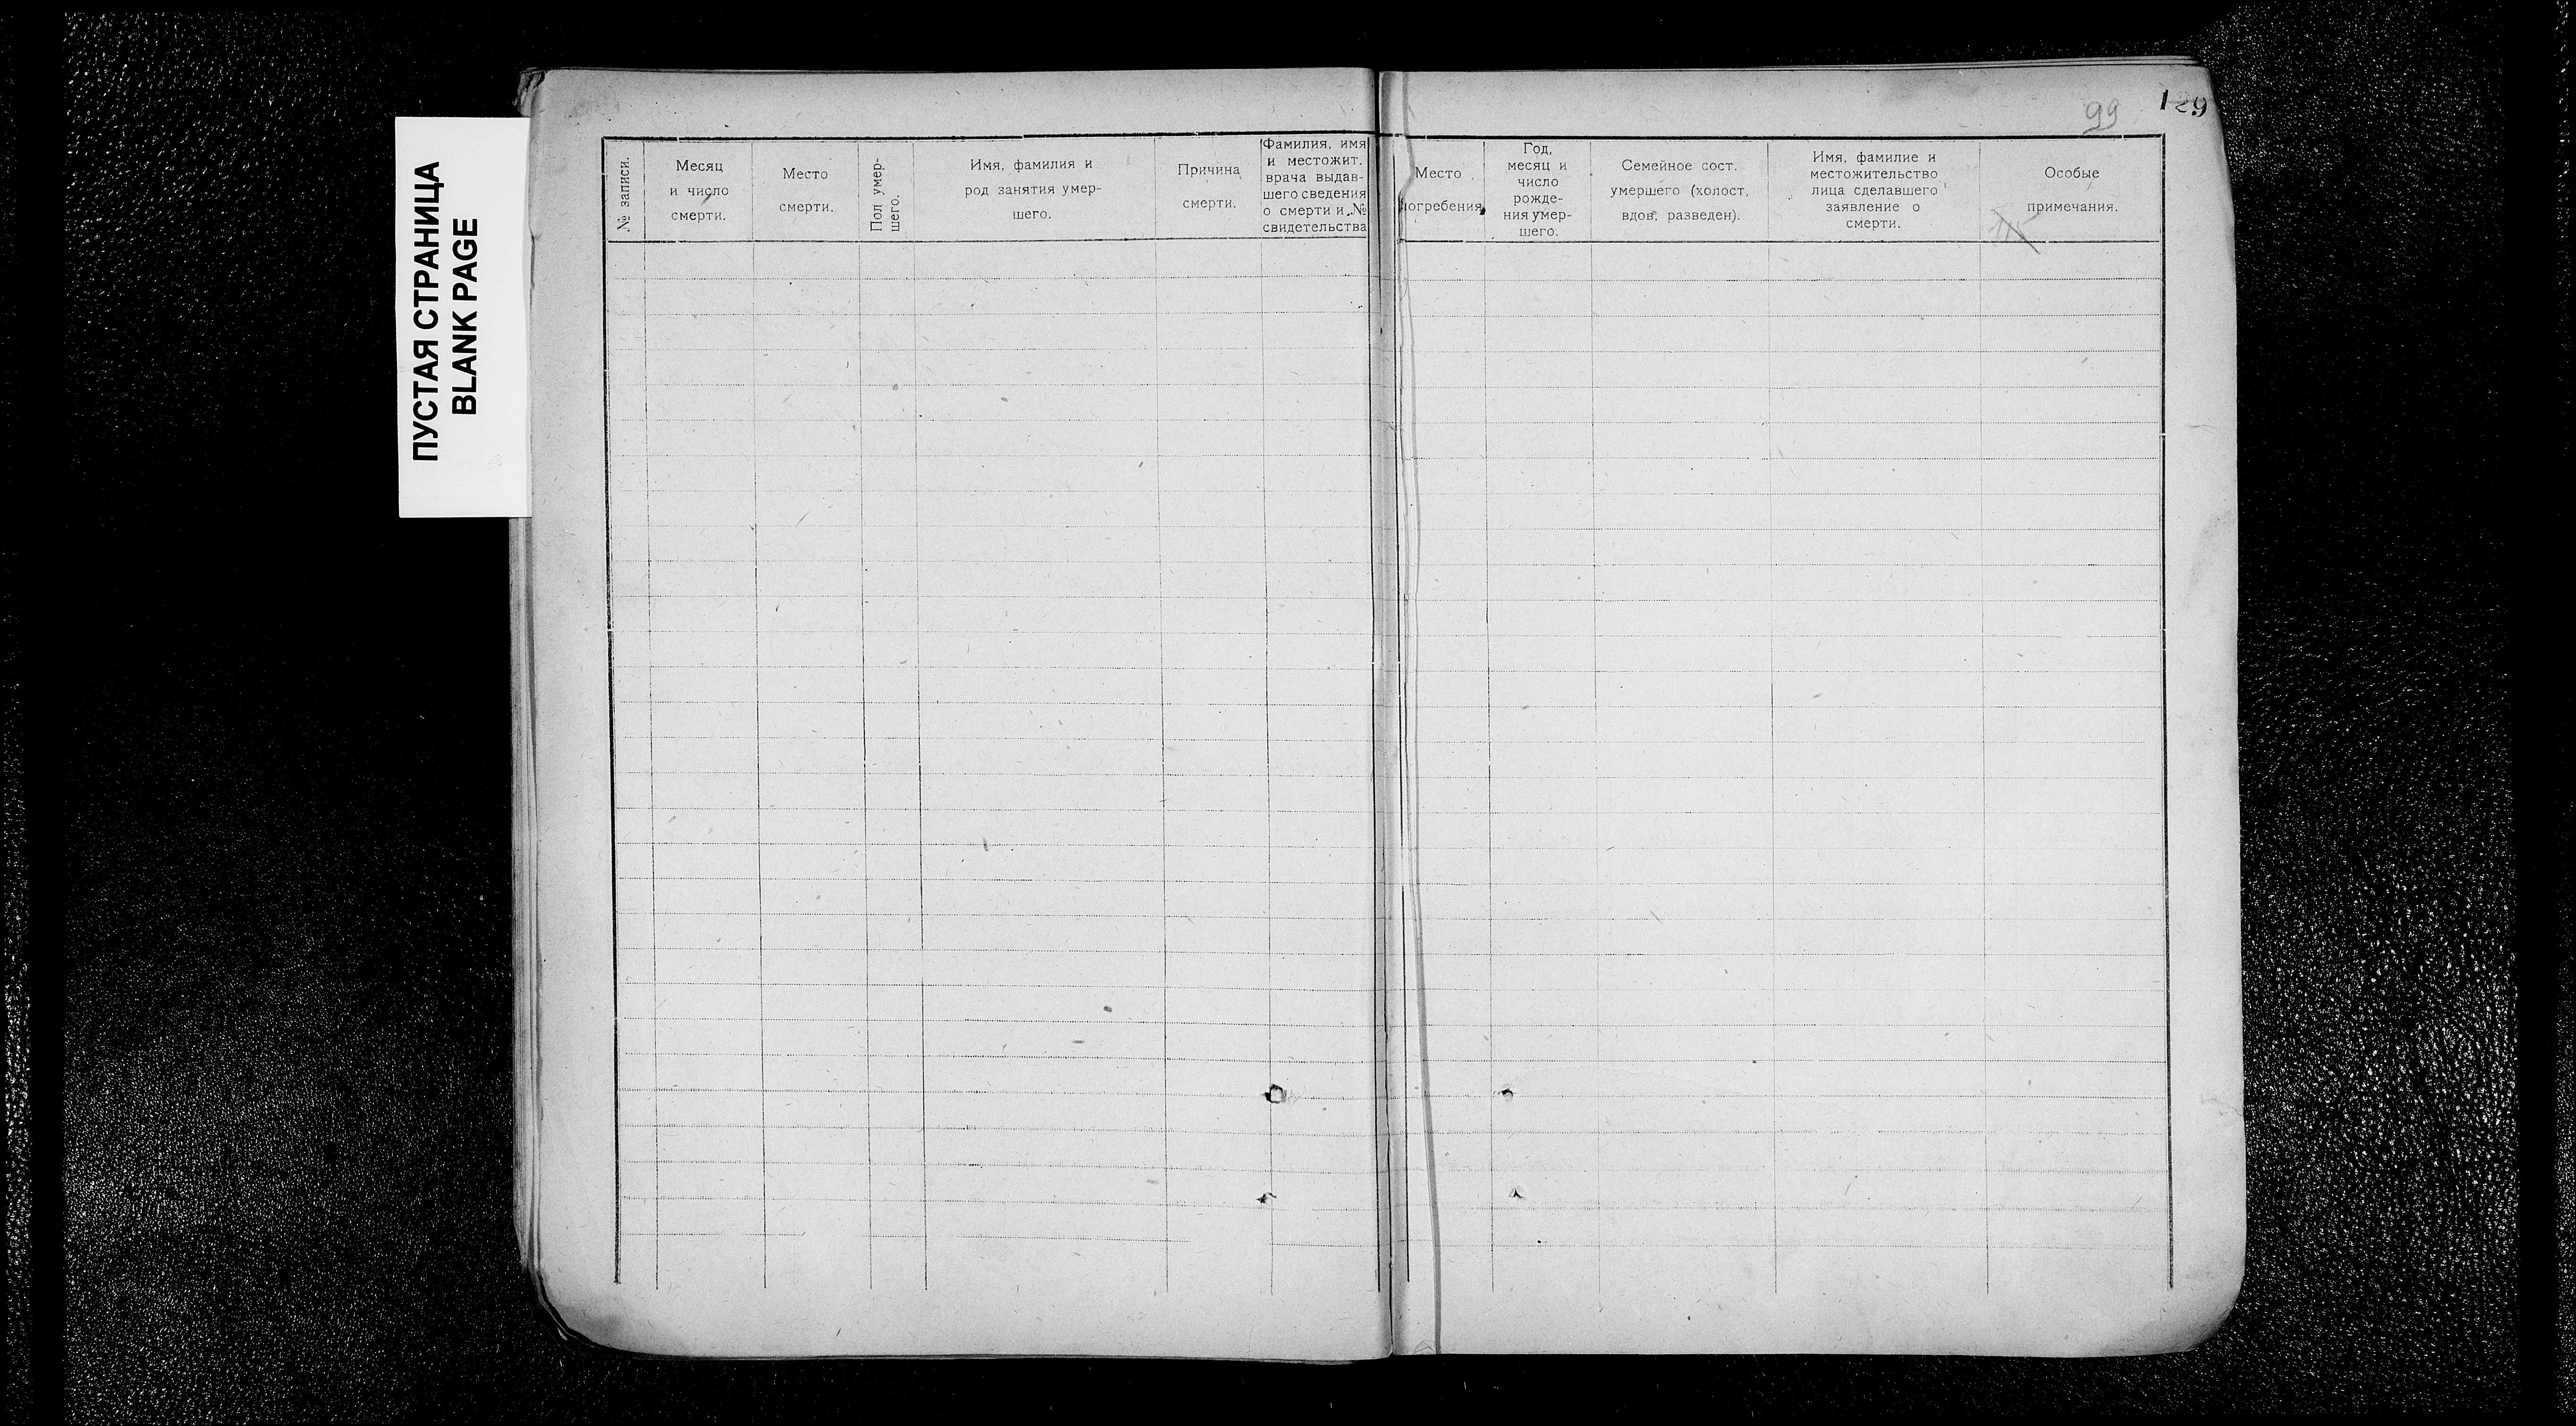 ПУСТАЯ СТРАНИЦА
BLANK PAGE
99
129
№ записи.
Месяц
и число
смерти.
Место
смерти.
Пол умер-
шего.
Имя, фамилия и
род занятия умер-
шего.
Причина
смерти.
Фамилия, имя
и местожит.
врача выдав-
шего сведения
о смерти и №
свидетельства
Место
погребения
Год,
месяц и
число
рожде-
ния умер-
шего.
Семейное сост.
умершего (холост,
вдов, разведен).
Имя, фамилие и
местожительство
лица сделавшего
заявление о
смерти.
Особые
примечания.